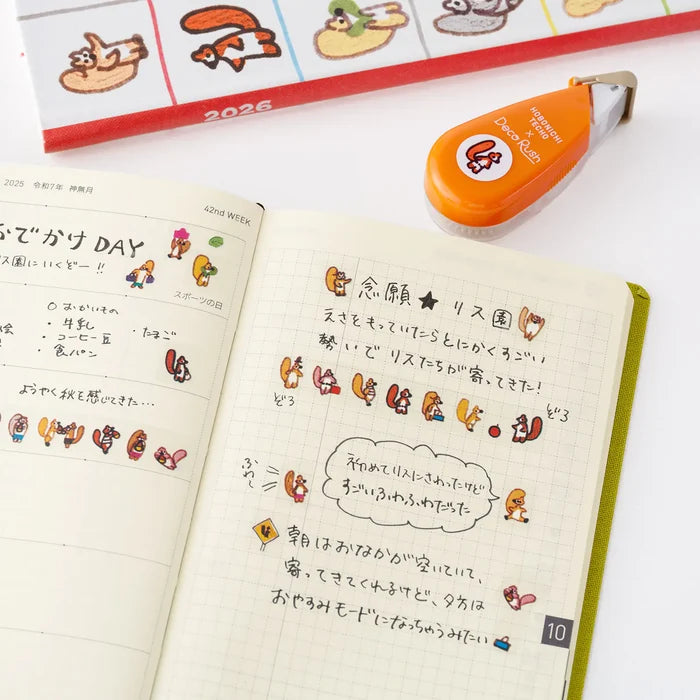 2026
HOBONICHI
TECHO
×
Deco Rush
2025 令和7年 神無月
42nd WEEK
おでかけDAY
リス園にいくぞー!!
スポーツの日
○おかいもの
・牛乳
・たまご
・コーヒー豆
・食パン
ようやく秋を感じてきた…
念願★リス園
えさをもっていたらとにかくすごい
勢いでリスたちが寄ってきた!
ぞろ
ぞろ
初めてリスにさわったけど
すごいふわふわだった
ふわ〜
朝はおなかが空いていて、
寄ってきてくれるけど、夕方は
おやすみモードになっちゃうみたい
10